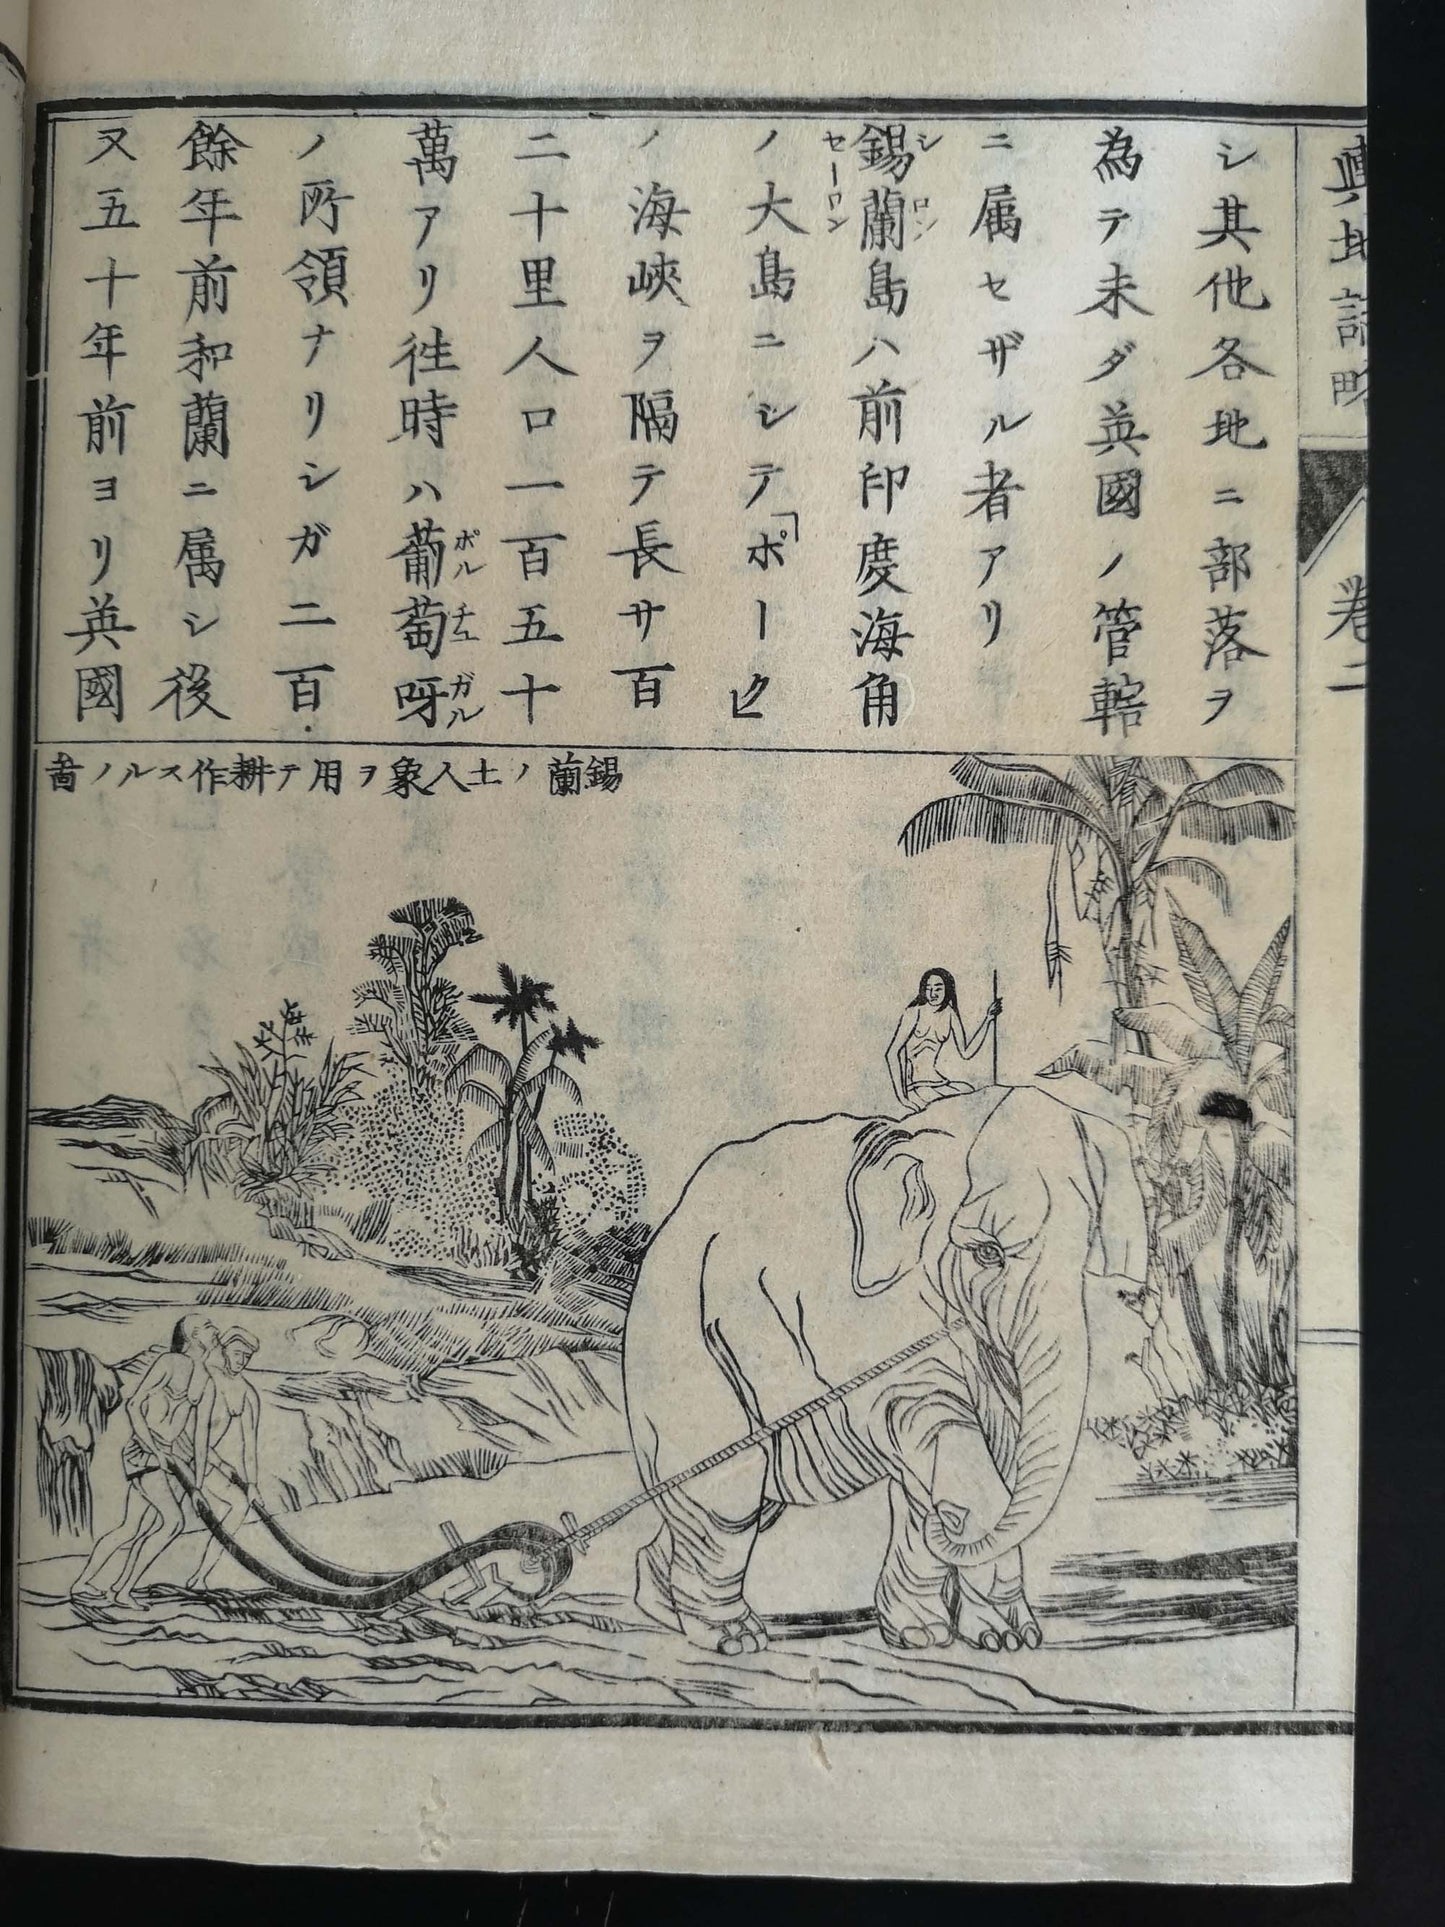 輿地誌略 卷二
シ其他各地ニ部落ヲ
為テ未ダ英國ノ管轄
ニ属セザル者アリ
シロン
錫蘭島ハ前印度海角
セーロン
ノ大島ニシテ「ポーク」
ノ海峽ヲ隔テ長サ百
二十里人口一百五十
ポルチュガル
萬アリ徃時ハ葡萄呀
ノ所領ナリシガ二百
餘年前和蘭ニ属シ後
又五十年前ヨリ英國
錫蘭ノ土人象ヲ用テ耕作スルノ啚